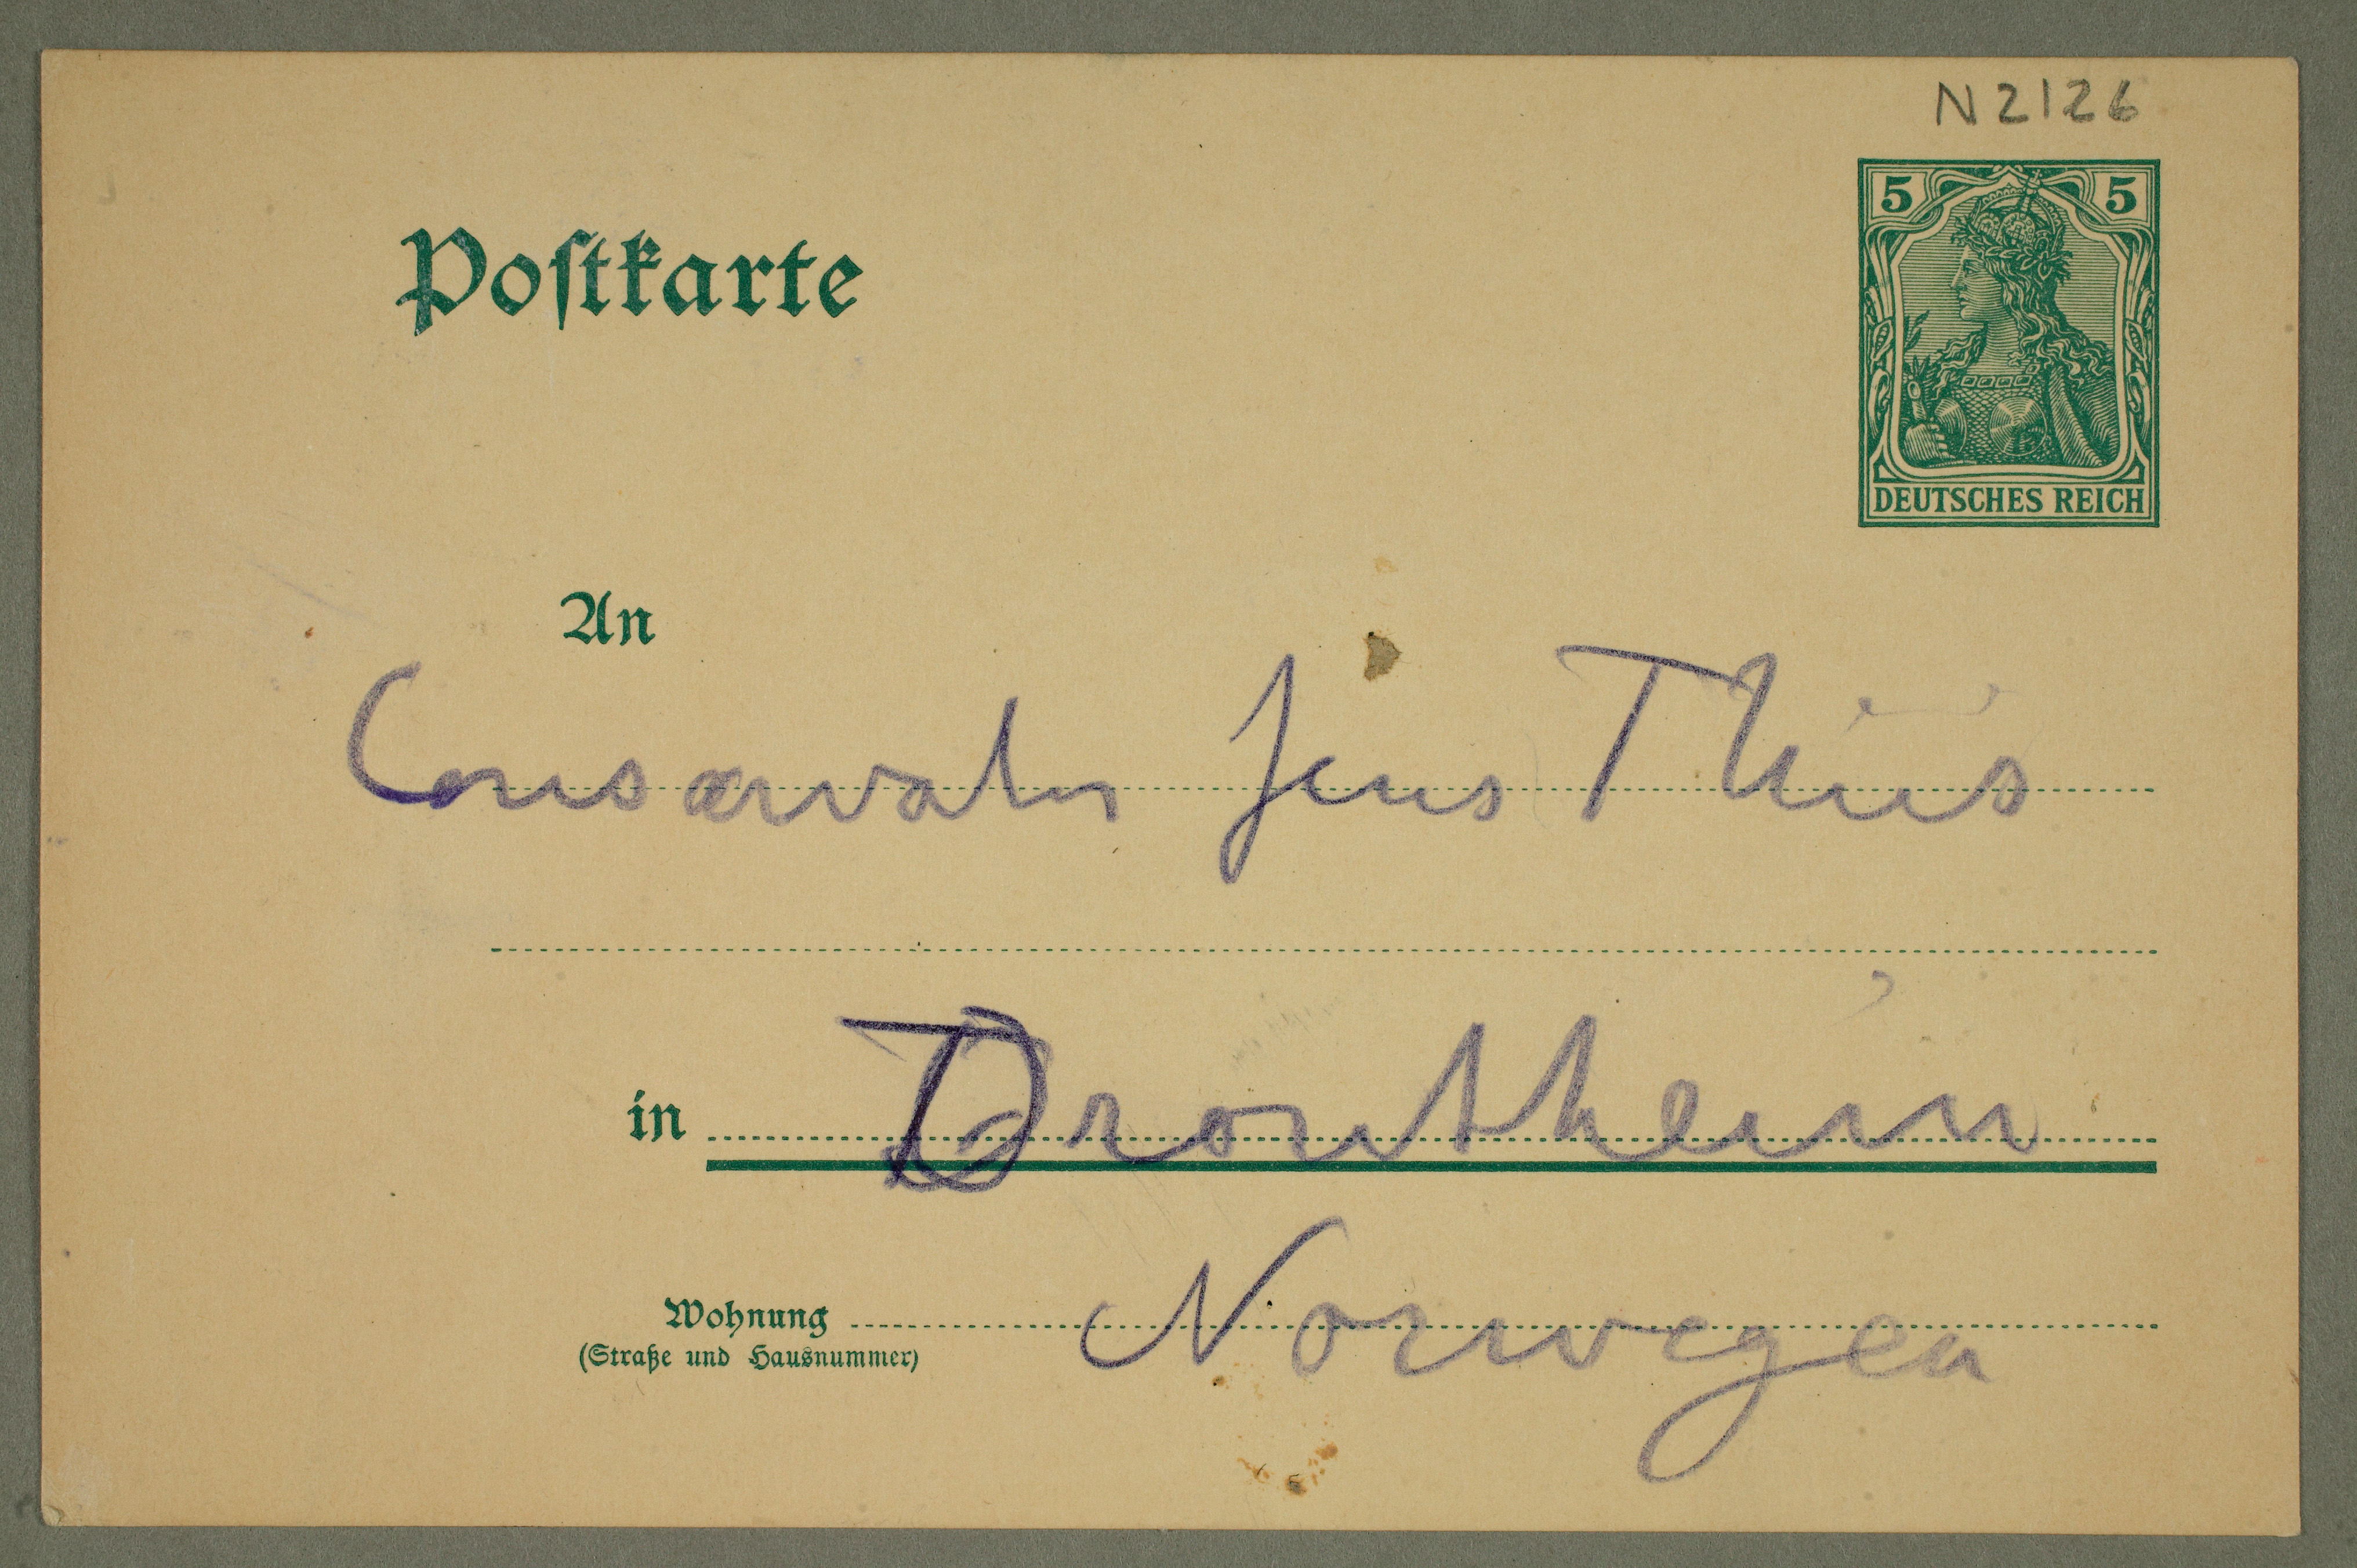 N 2126
5 5
Postkarte
DEUTSCHES REICH
An
Consærvator Jens Thiis
in Drontheim
Norwegen
Wohnung
(Straße und Hausnummer)